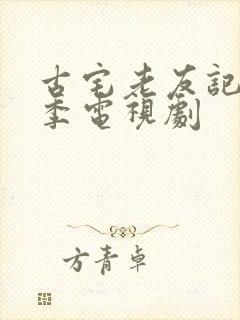 古宅老友記
季電視劇
方青卓